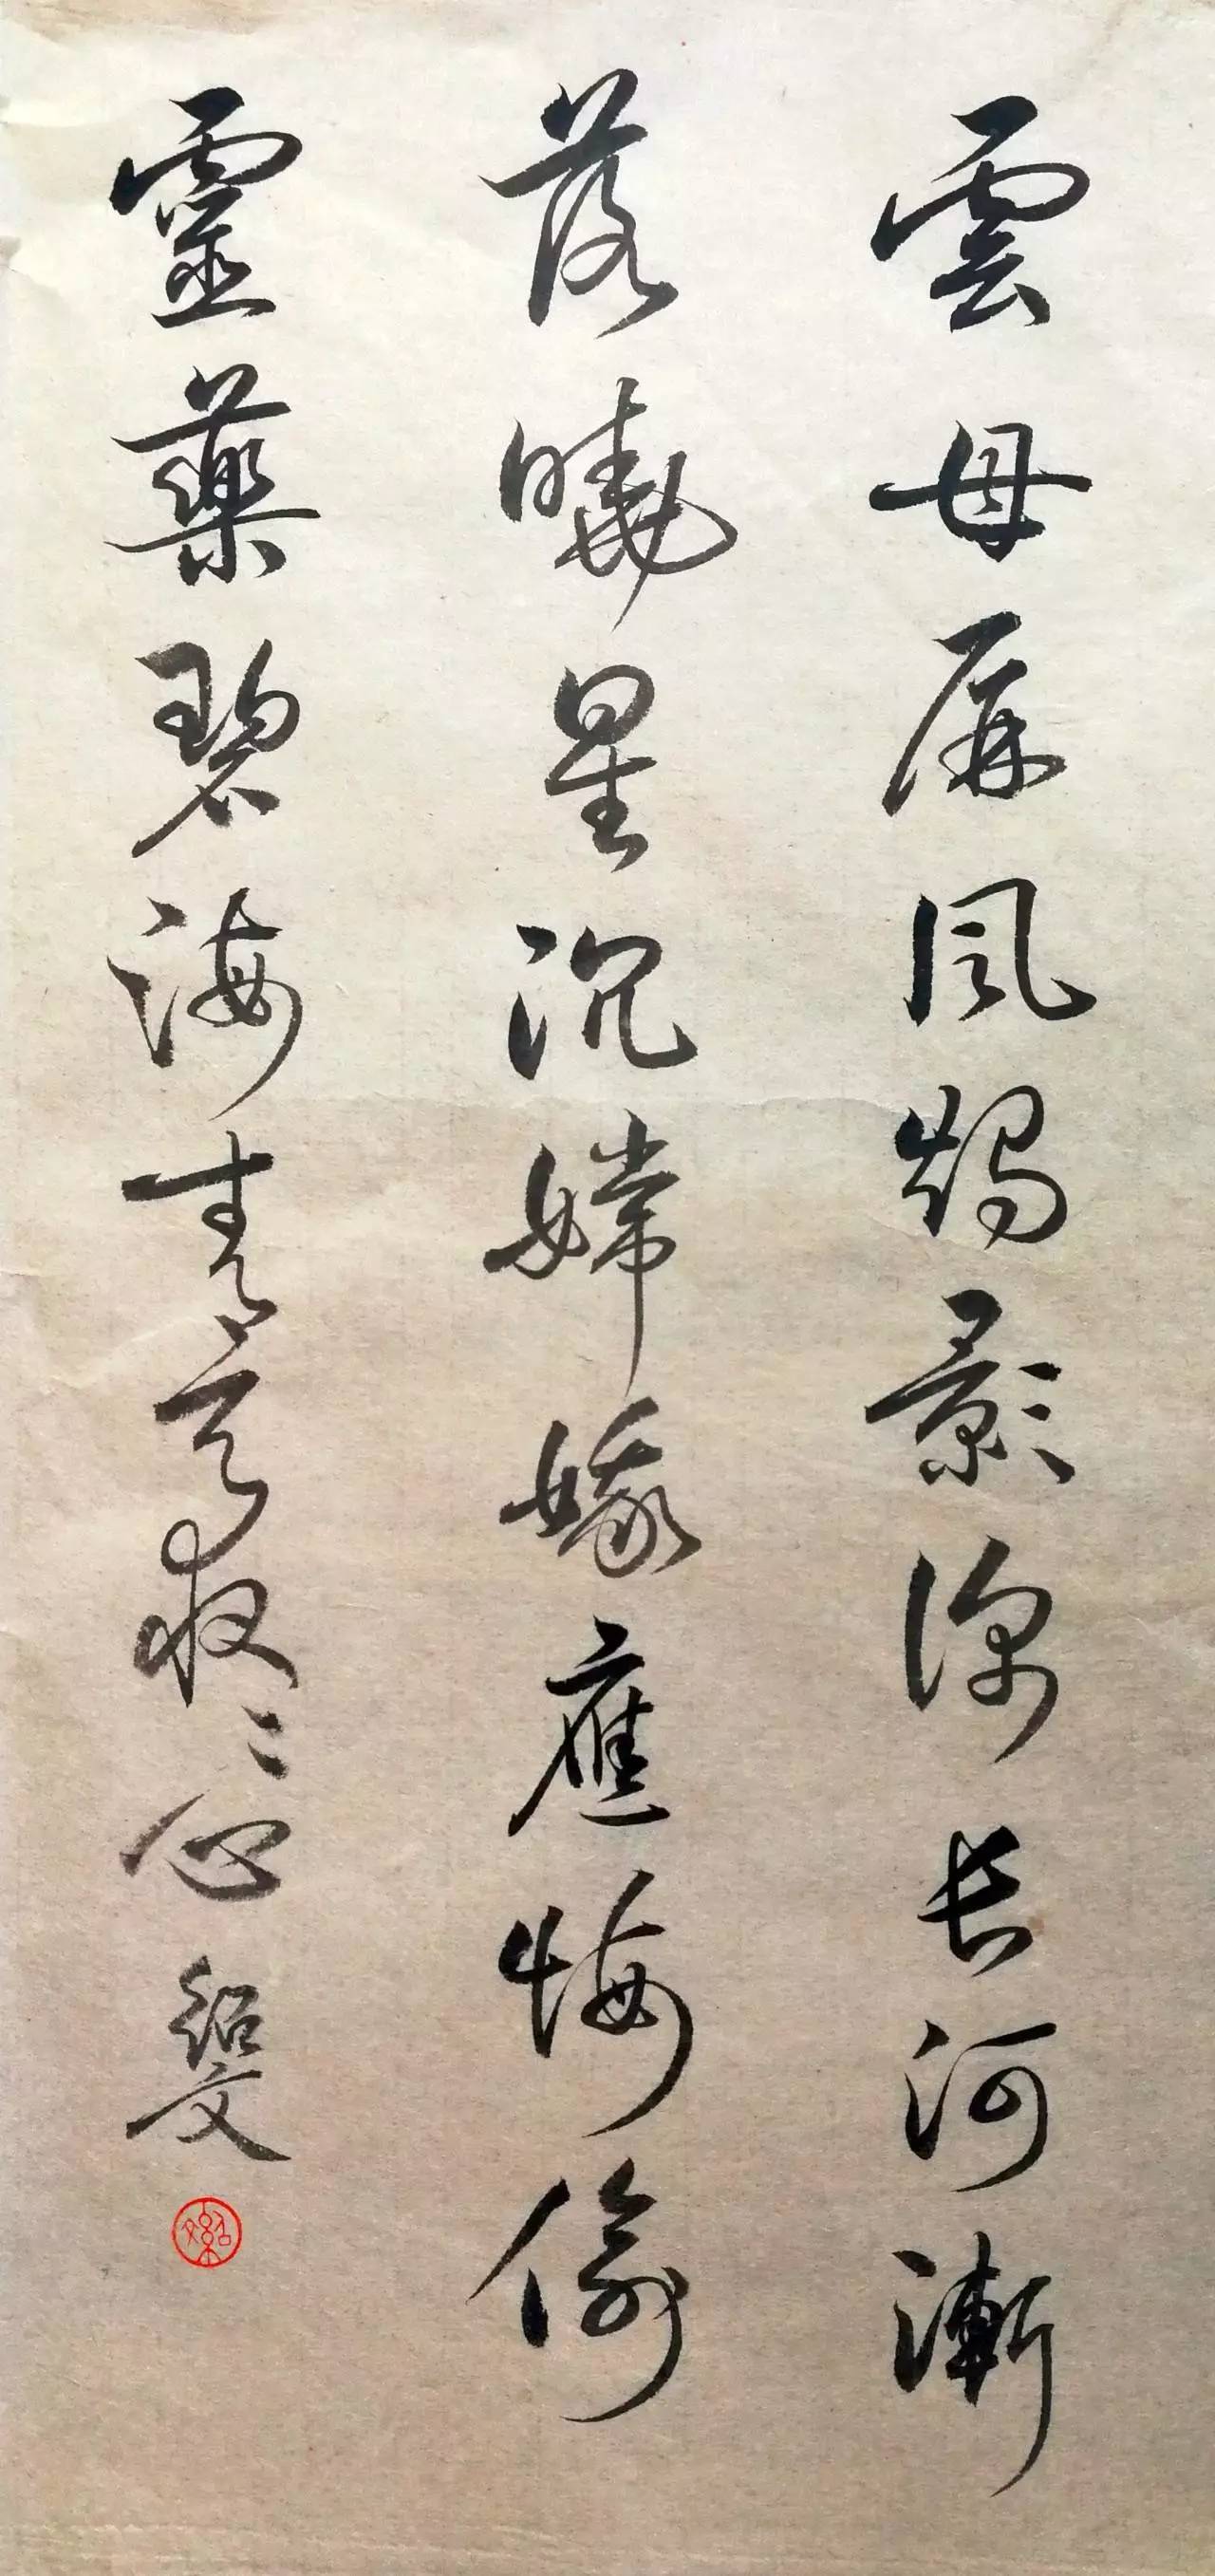 雲母屏風燭影深长河漸
落曉星沉嫦娥應悔偷
靈藥碧海青天夜〻心 紹文